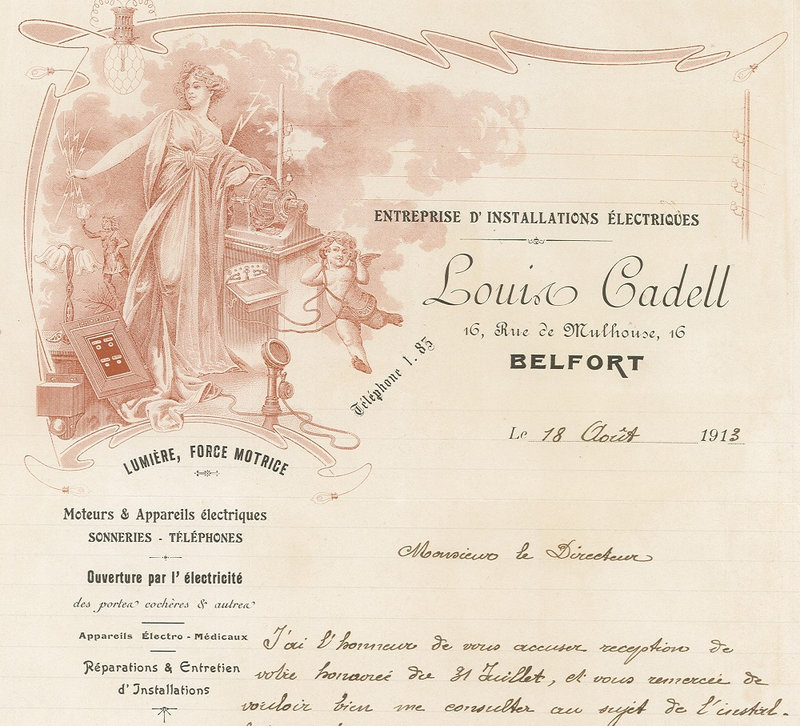 ENTREPRISE D'INSTALLATIONS ÉLECTRIQUES
Louis Cadell
16, Rue de Mulhouse, 16
BELFORT
Téléphone 1.85
Le 18 Août 1913
LUMIÈRE, FORCE MOTRICE
Moteurs & Appareils électriques
SONNERIES - TÉLÉPHONES
Ouverture par l'électricité
des portes cochères & autres
Appareils Électro-Médicaux
Réparations & Entretien
d'Installations
Monsieur le Directeur
J'ai l'honneur de vous accuser reception de
votre honorée du 31 Juillet, et vous remercie de
vouloir bien me consulter au sujet de l'instal-